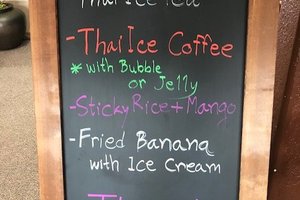 Thai Ice Tea
-Thai Ice Coffee
* with Bubble
or Jelly
-Sticky Rice + Mango
-Fried Banana
with Ice Cream